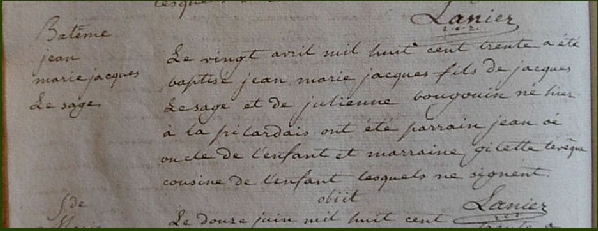 Lanier
Batême
jean
marie jacques
Le sage
Le vingt avril mil huit cent trente a été
baptisé jean marie jacques fils de jacques
Le sage et de julienne bougouin né hier
à la pilardais ont été parrain jean
oncle de l'enfant et marraine gilette levêque
cousine de l'enfant lesquels ne signent.
obiit
Lanier
Le douze juin mil huit cent
trente